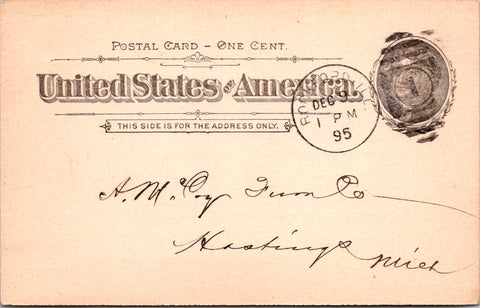 POSTAL CARD – ONE CENT.
United States of America.
THIS SIDE IS FOR THE ADDRESS ONLY.
ROCKFORD ILL.
DEC 9
1 PM
95
A. McCoy Furn Co
Hastings
Mich